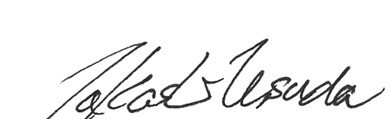 Takashi Usuda